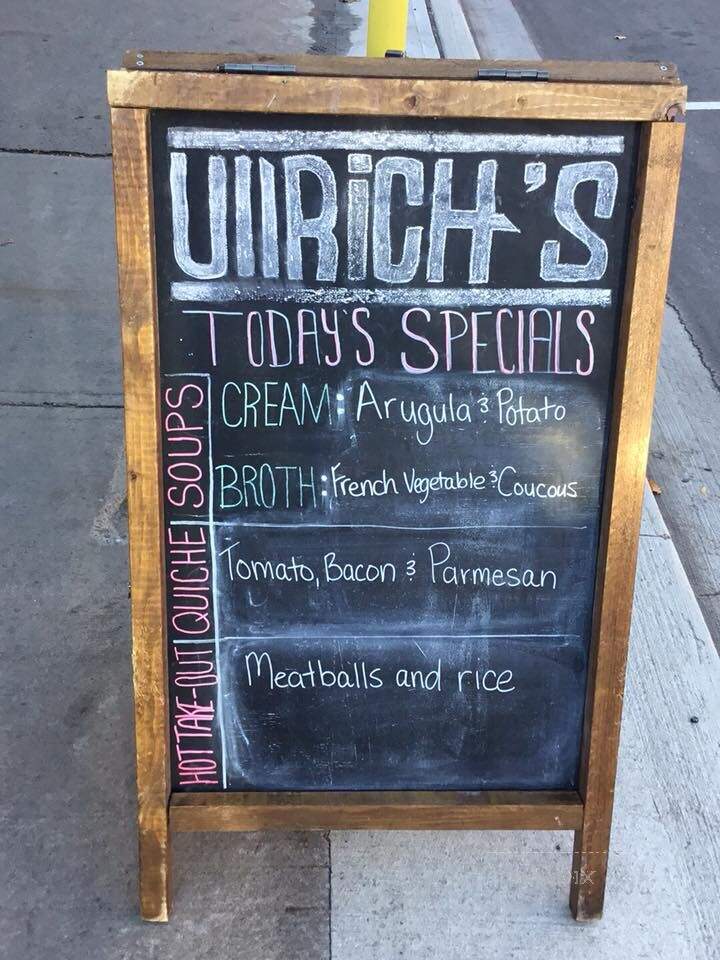 UllRiCH'S
TODAY'S SPECIALS
SOUPS
CREAM: Arugula & Potato
BROTH: French Vegetable & Coucous
QUICHE
Tomato, Bacon & Parmesan
HOT TAKE-OUT
Meatballs and rice